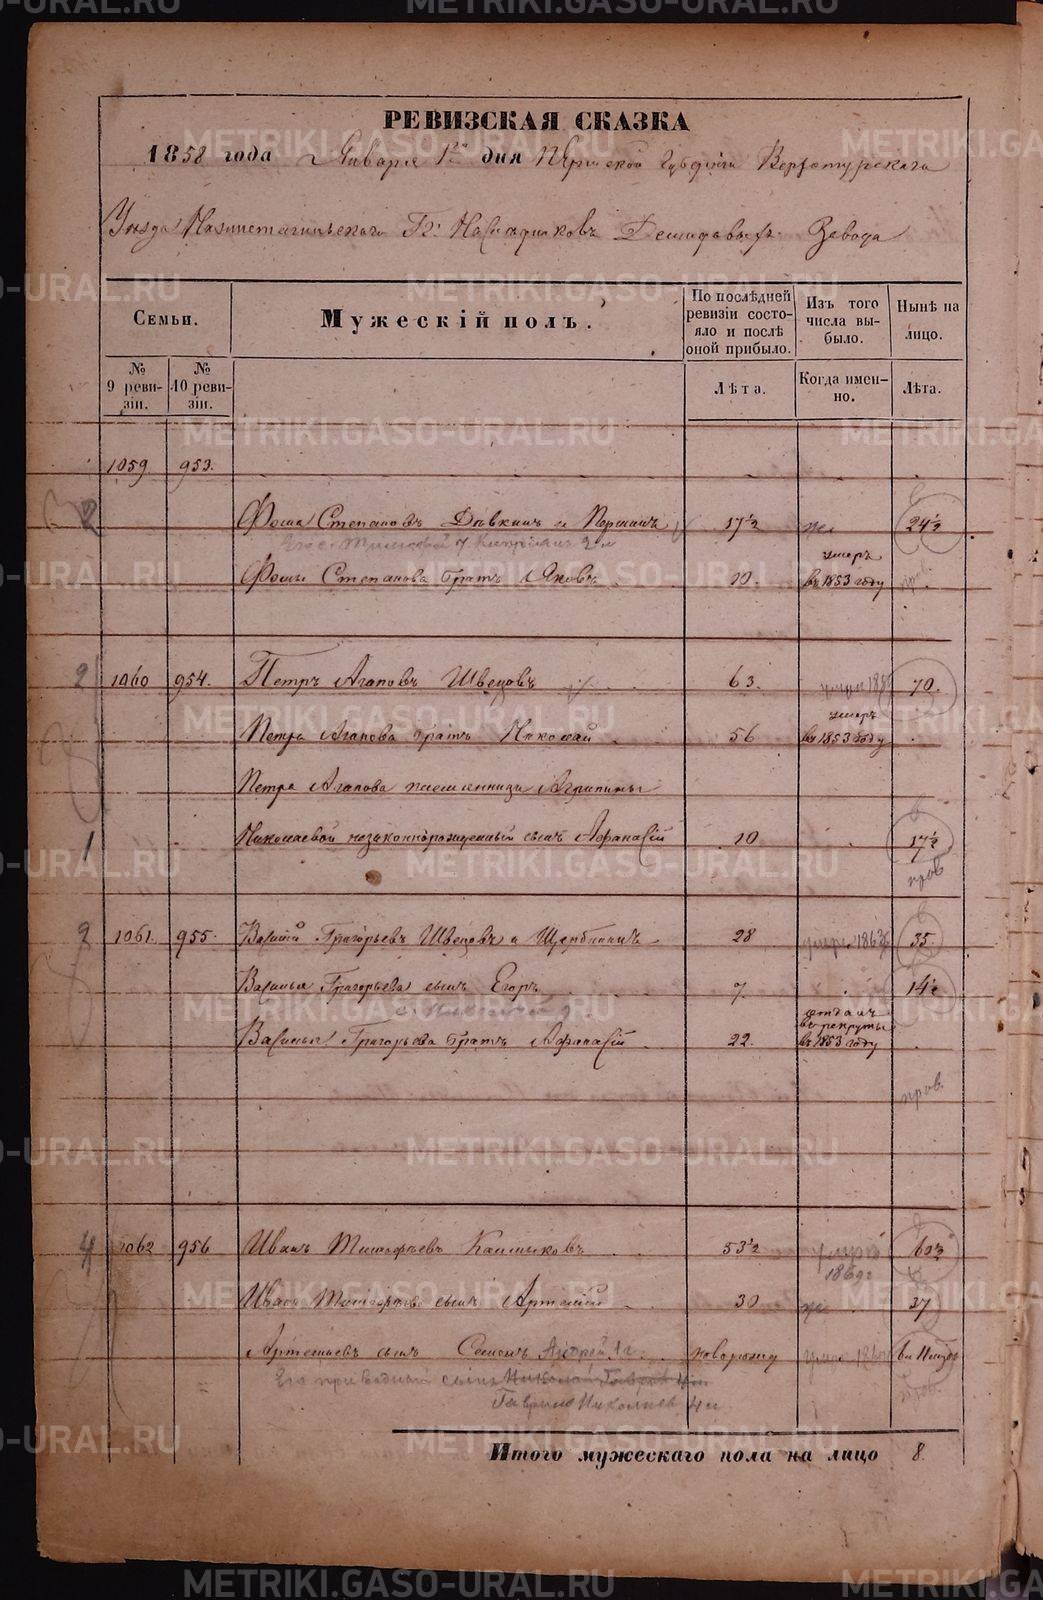 РЕВИЗСКАЯ СКАЗКА
1858 года Января 1го дня Пермской Губернии Верхотурскаго
Уезда Нижнетагильскаго Гг. Наследниковъ Демидовыхъ Завода
Семьи.
Мужескій полъ.
По послѣдней ревизіи состояло и послѣ оной прибыло.
Изъ того числа выбыло.
Нынѣ на лицо.
№ 9 ревизіи.
№ 10 ревизіи.
Лѣта.
Когда именно.
Лѣта.
1059 953.
2 Фома Степановъ Дѣвкинъ и Першинъ 17½ 24½
Фомы Степанова братъ Яковъ 10. умеръ въ 1853 году
2 1060 954. Петръ Агаповъ Швецовъ 63. 70.
Петра Агапова братъ Николай 56 умеръ въ 1853 году
Петра Агапова племянницы Агрипины
1 Николаевой незаконнорожденный сынъ Афанасій 10 17½
пров
2 1061. 955. Василій Григорьевъ Швецовъ и 28 35.
Василья Григорьева сынъ Егоръ 7. 14½
Василья Григорьева братъ Афанасій 22. отданъ въ рекруты въ 1853 году
пров.
4 1062 956 Иванъ Тимофеевъ 53½ умеръ 1869г 60½
Ивана Тимофеева сынъ Артемій 30 37
Артемьевъ сынъ Семенъ Андрей 1г новорожд
Его приводной сынъ
Гаврило Николаев 4
Итого мужескаго пола на лицо 8.
METRIKI.GASO-URAL.RU